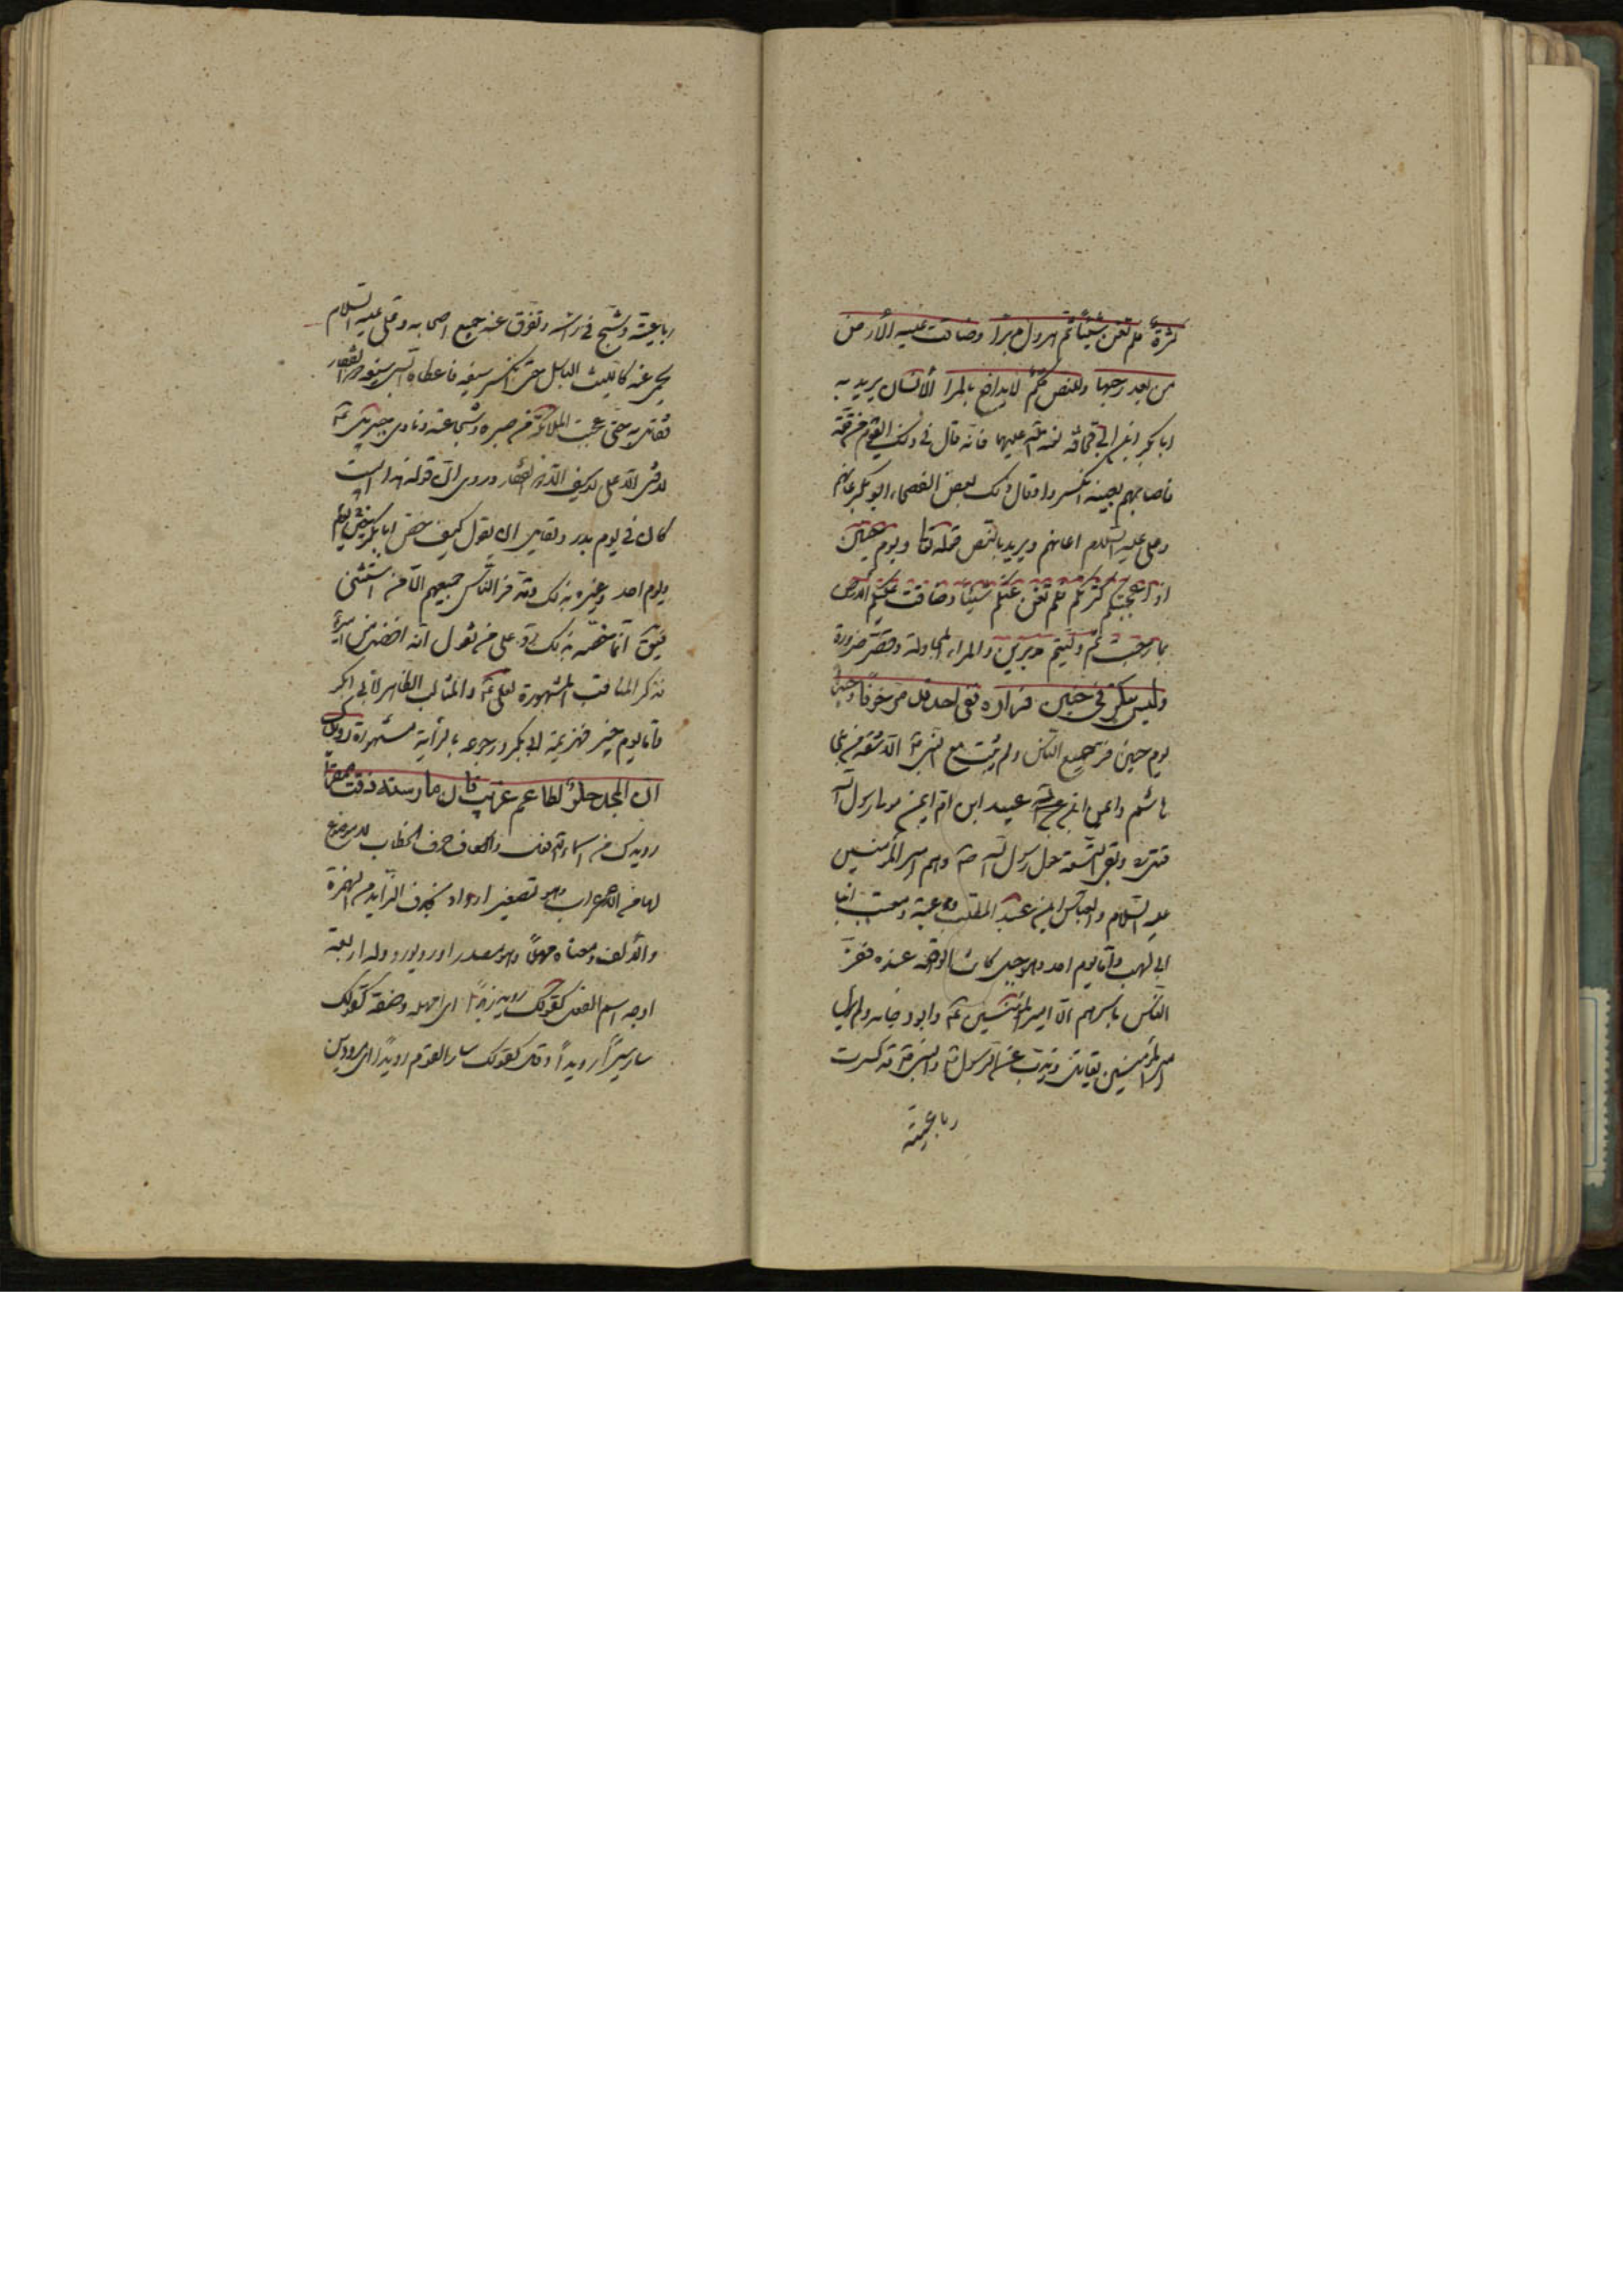 كثرة فلم تغن شيئا ثم هرول مدبرا وضاقت عليه الأرض
من بعد رحبها وللنص حكم لا يدافع بالمرا الأنسان يريد به
ابا بكر ابن ابي قحافه فانه قال في ذلك اليوم
فاصابهم بعينه انكسروا وقال في ذلك بعض الفصحاء ابو بكر عانهم
وعلى عليه السلام اعانهم ويريد بالنص قوله تعالى ويوم حنين
اذ اعجبتكم كثرتكم فلم تغن عنكم شيئا وضاقت عليكم الارض
بما رحبت ثم وليتم مدبرين والمراء المجادلة وقصره ضرورة
وليس بنكر في حنين فراره ففي احد قد فر خوفا وخيبرا
يوم حنين فر جميع الناس ولم يثبت مع النبي الا تسعة من بني
هاشم وايمن ابن عبيد ابن ام ايمن مولى رسول الله
فقتل وبقى التسعة حول رسول الله وهم امير المؤمنين
عليه السلام والعباس ابن عبد المطلب وعتبة ومعتب ابنا
ابى لهب واما يوم احد وهو جبل كانت الواقعة عنده ففر
الناس باسرهم الا امير المؤمنين وابو دجانه ولم يزل
امير المؤمنين يقاتل ويذب عن الرسول والنبي قد كسرت
رباعيته
رباعيته وشج في راسه وتفرق عنه جميع اصحابه وعلى عليه السلام
يحمى عنه كالليث الباسل حتى انكسر سيفه فاعطاه النبي سيفه ذو الفقار
فقاتل به حتى عجبت الملائكة من صبره وشجاعته ونادى جبرئيل
لا فتى الا على لا سيف الا ذو الفقار وروى ان قوله هذا البيت
كان في يوم بدر ولقايل ان يقول كيف خص ابا بكر بحنين
ويوم احد وغيره بذلك وقد فر الناس جميعهم الا من استثنى
فيق انما خصه بذلك رد على من يقول انه افضل من امير
فذكر المناقب المشهورة لعلى والمثالب الظاهر لابى بكر
واما يوم خيبر فهزيمة ابى بكر ورجوعه بالرأية مشهراة رويدك
ان المجد حلو لطاعم غريب فان مارسته ذقت ممقرا
رويدك من اسماء الفعل والكاف حرف الخطاب لا موضع
لها من الاعراب وهو تصغير ارواد بحذف الزايد من الهمزة
والالف ومعناه مهلا وهو مصدر اورد يورد وله اربعة
اوجه اسم الفعل كقولك رويد زيدا اى امهله وصفة كقولك
سار سيرا رويدا وحال كقولك سار القوم رويدا اى مرودين